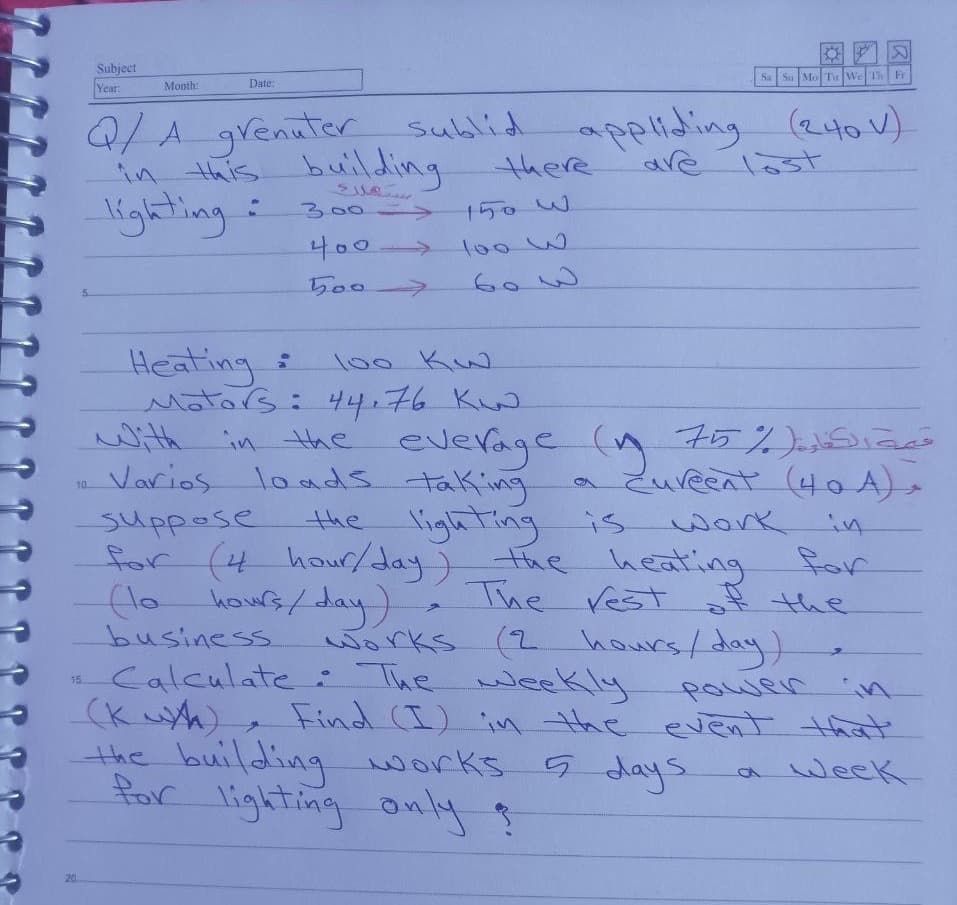 Subject
Year: Month: Date:
Sa Su Mo Tu We Th Fr
Q/ A grenuter sublid appliding (240 V)
in this building there are lost
lighting : 300 → 150 W
400 → 100 W
5
500 → 60 W
Heating : 100 KW
Motors : 44.76 KW
with in the everage (η 75 %)
10
Varios loads taking a cureent (40 A),
suppose the lighting is work in
for (4 hour/day) the heating for
(10 hours/day), The rest of the
business works (2 hours/day),
15
Calculate : The weekly power in
(K wh), Find (I) in the event that
the building works 5 days a week
for lighting only ?
20